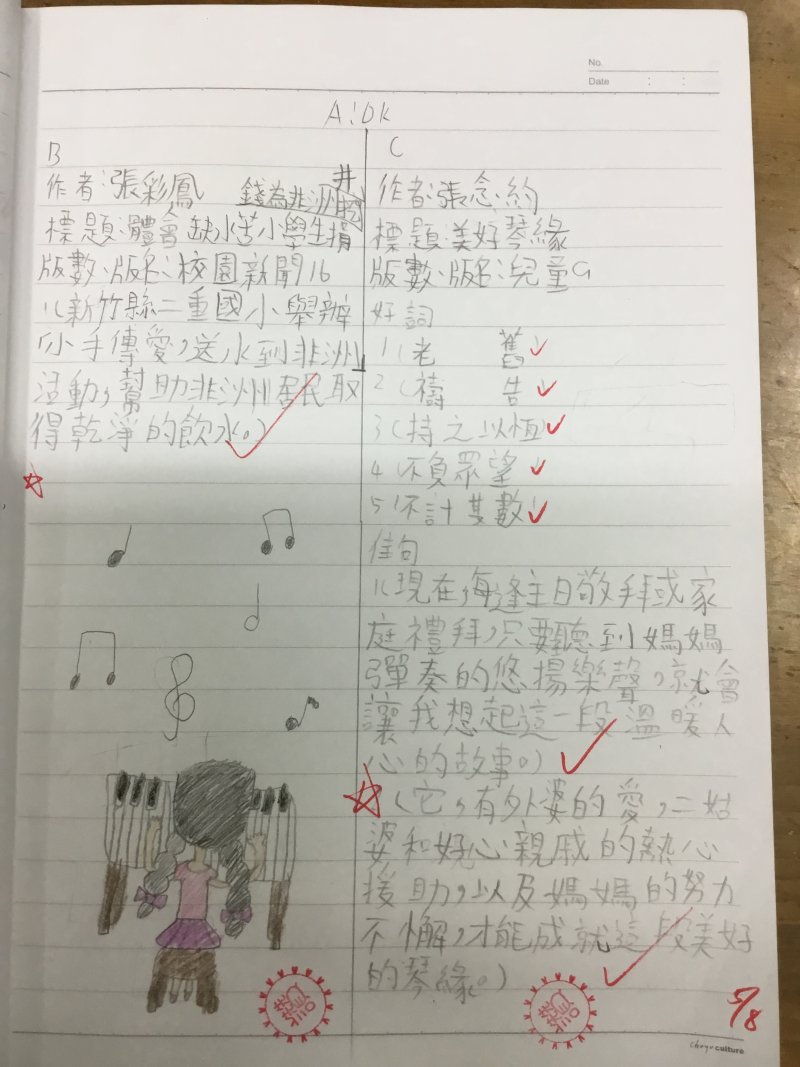 No.
Date : :
A!OK
B
作者:張彩鳳
標題:體會缺水苦小學生捐
錢為非洲挖
井
版數、版名:校園新聞16
1(新竹縣二重國小舉辦
「小手傳愛,送水到非洲」
活動,幫助非洲居民取
得乾淨的飲水。)
C
作者:張念約
標題:美好琴緣
版數、版名:兒童9
好詞
1(老 舊)
2(禱 告)
3(持之以恆)
4(不負眾望)
5(不計其數)
佳句
1(現在,每逢主日敬拜或家
庭禮拜,只要聽到媽媽
彈奏的悠揚樂聲,就會
讓我想起這一段溫暖人
心的故事。)
(它,有外婆的愛,二姑
婆和好心親戚的熱心
援助,以及媽媽的努力
不懈,才能成就這段美好
的琴緣。)
5/8